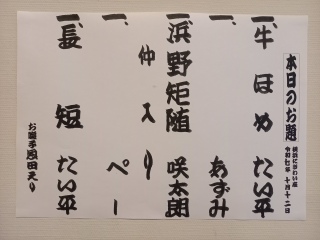 本日のお題
横浜にぎわい座
令和七年 十月十二日
一、牛ほめ たい平
一、 あずみ
一、浜野矩随 咲太朗
仲入り
一、 ぺー
一、長短 たい平
お囃子 恩田えり